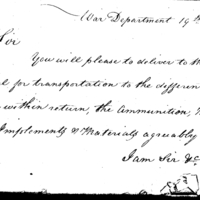 War Department 19th
Sir
You will please to deliver to th
for transportation to the differen
within return, the Ammunition,
Implements & Materials agreeably
I am Sir &c